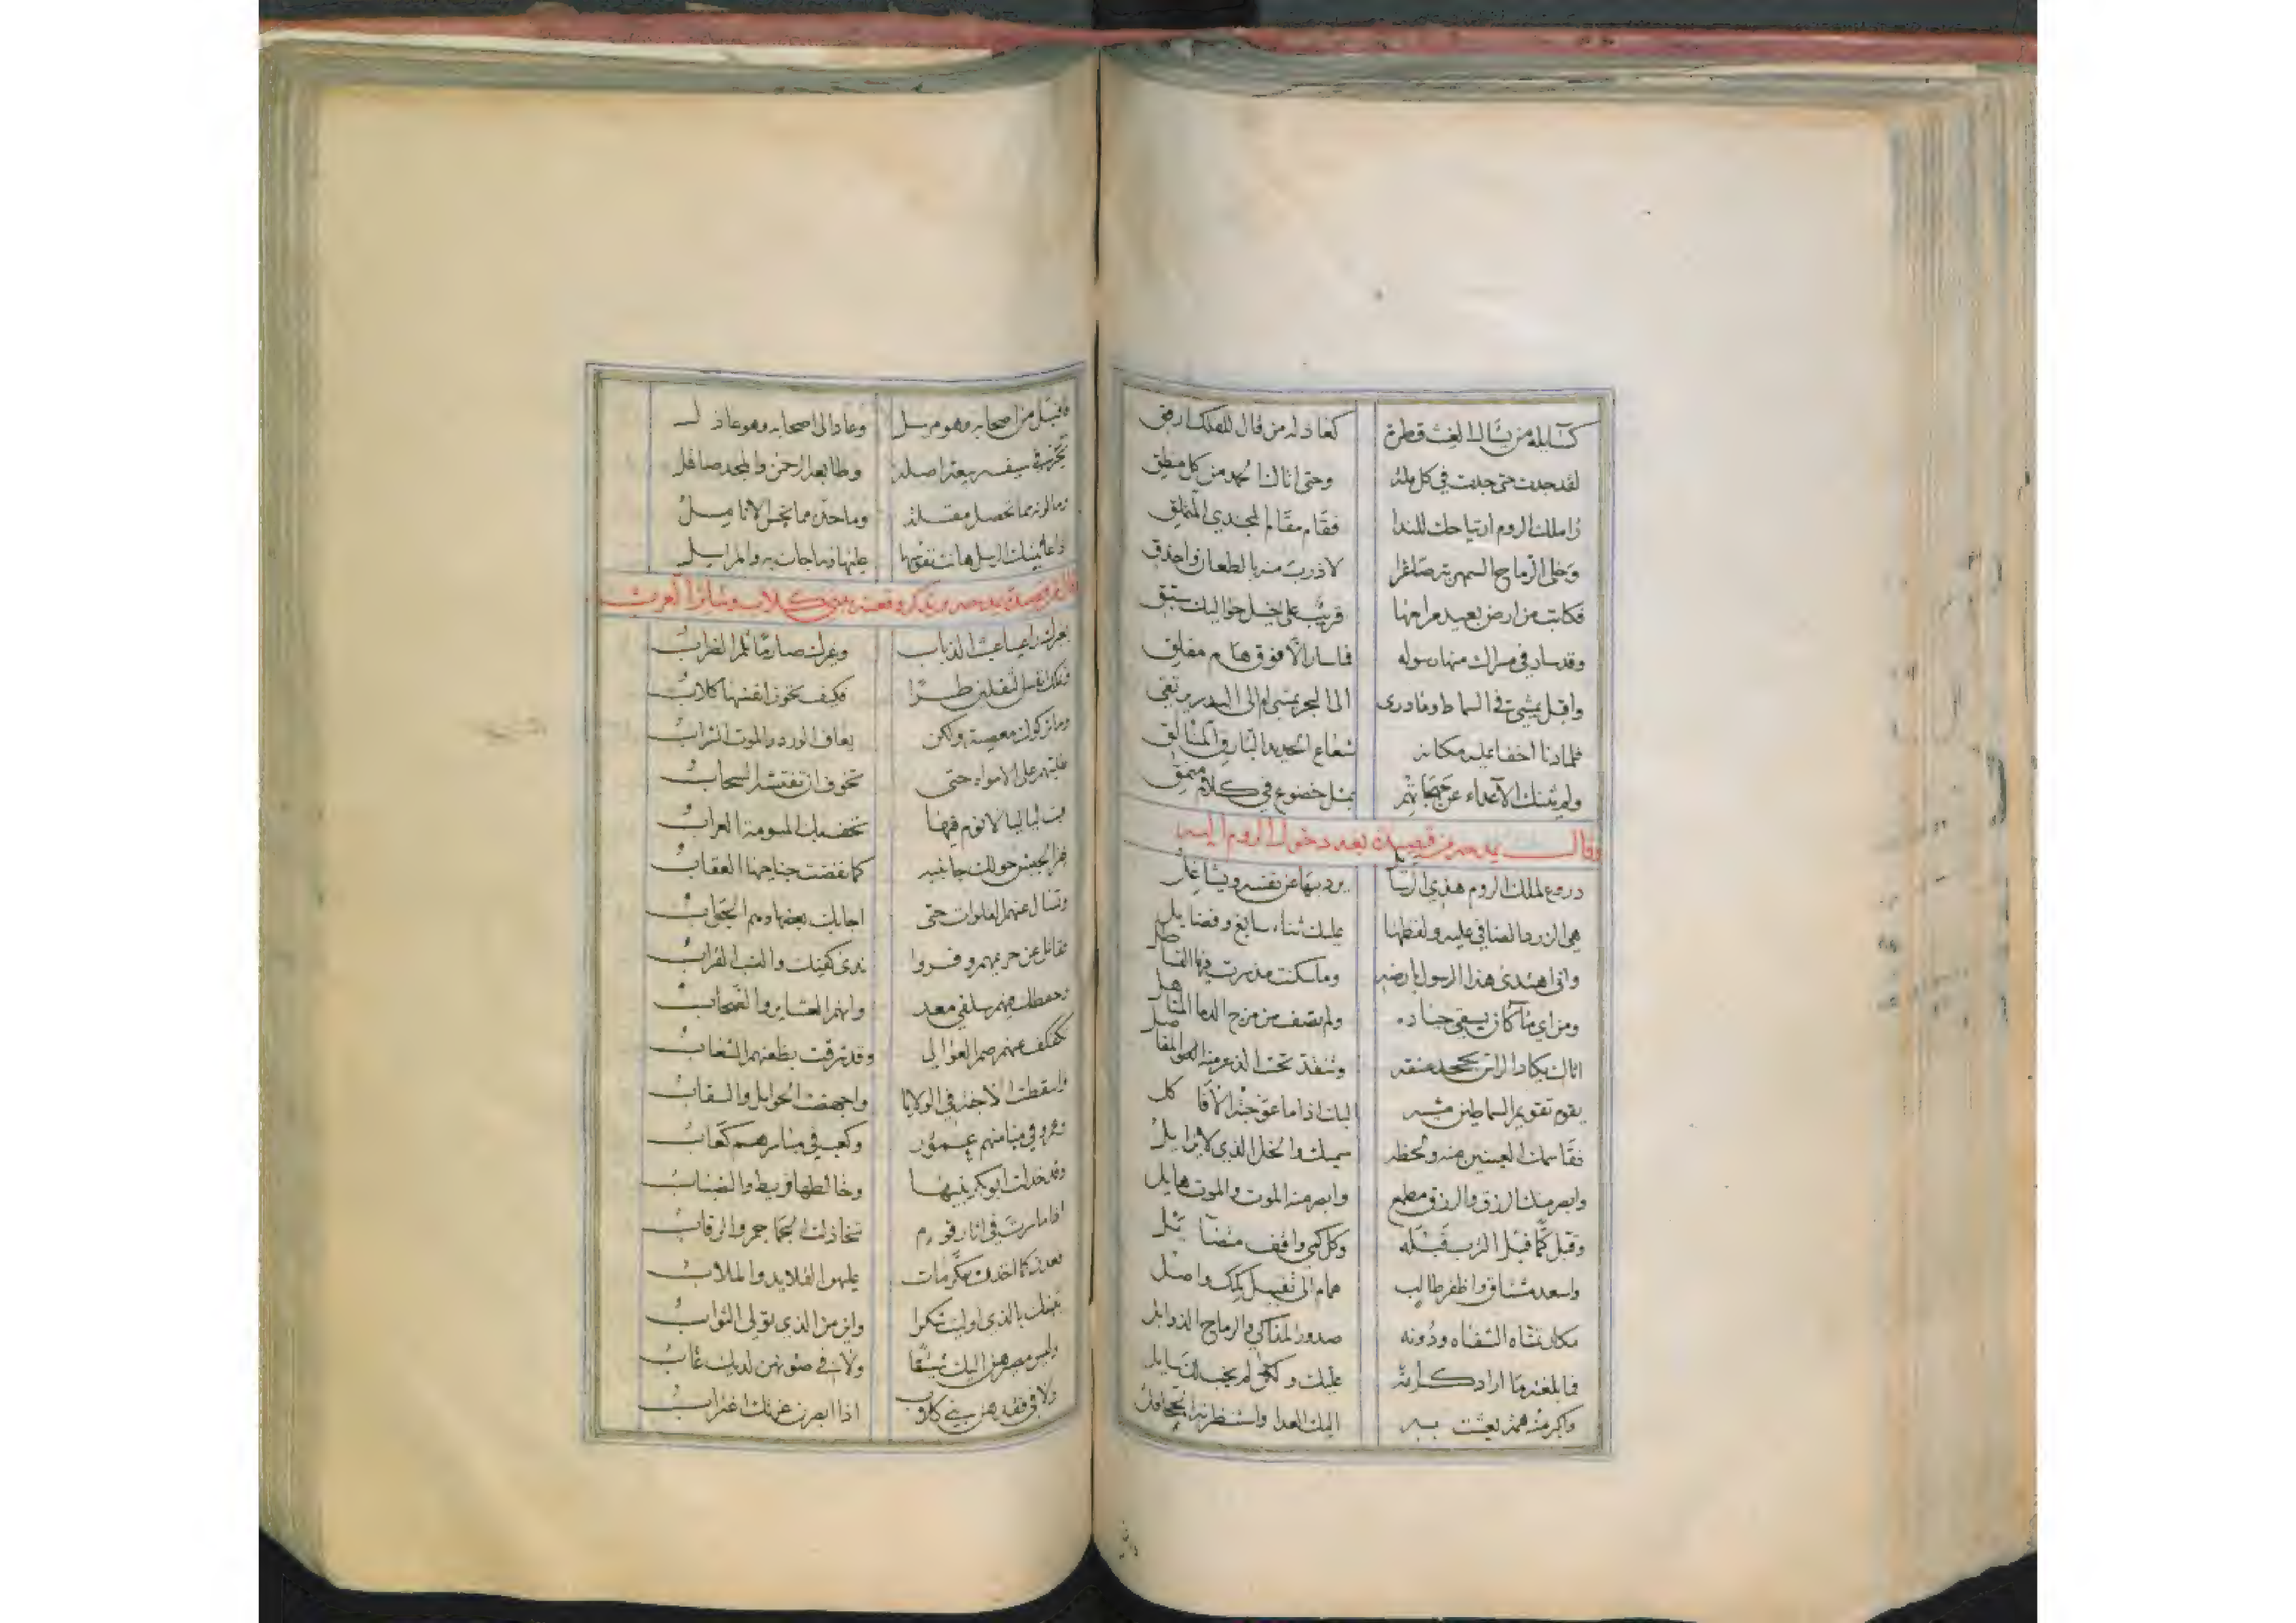 كسائله من يسال الغيث قطرة كعاذله من قال للفلك ارفق
لقد جدت حتى جدت في كل ملة وحتى اتاك الحمد من كل منطق
راى ملك الروم ارتياحك للندا فقام مقام المجتدي المتملق
وخلى الرماح السمهرية صاغرا لادرب منه بالطعان واحذق
فكاتب من ارض بعيد مرامها قريب على خيل حواليك سبق
وقد سار في مسراك منها رسوله فما سار الا فوق هام مفلق
واقبل يمشي في السماط وما درى الى البحر يمشي ام الى البدر يرتقي
فلما دنا اخفا عليه مكانه شعاع الحديد البارق المتالق
ولم يثنك الاعداء عن مهجاتهم بمثل خضوع في كلام منمق
وقال يمدحه من قصيدة بعد دخول الروم اليه
دروع لملك الروم هذي الرسائل يرد بها عن نفسه ويشاغل
هي الزرد الضافي عليه ولفظها عليك ثناء سابغ وفضايل
واني اهتدى هذا الرسول بارضه وما سكنت مذ سرت فيها القساطل
ومن اي ماء كان يسقي جياده ولم تصف من مزج الدما المناهل
اتاك يكاد الراس يجحد عنقه وتنقد تحت الذعر منه المفاصل
يقوم تقويم السماطين مشيه اليك اذا ما عوجته الافاكل
فقاسمك العينين منه ولحظه سميك والخل الذي لا يزايل
وابصر منك الرزق والرزق مطمع وابصر منه الموت والموت هايل
وقبل كما قبل الترب قبله وكل كمي واقف متضايل
واسعد مشتاق واظفر طالب همام الى تقبيل كمك واصل
مكان تمناه الشفاه ودونه صدور المذاكي والرماح الذوابل
فما بلغته ما اراد كرامة عليك ولكن لم يخب لك سايل
واكبر منه همة بعثت به اليك العدا واستنظرته الجحافل
فاقبل من اصحابه وهو مرسل وعاد الى اصحابه وهو عاذل
تحير في سيف ربيعة اصله وطابعه الرحمن والمجد صاقل
وما لونه مما تحصل مقلة وما حده مما تجس الانامل
اذا عاينتك الرسل هانت نفوسها عليها وما جات به والمراسل
وقال من قصيدة يمدحه ويذكر وقعته ببني كلاب وسائر العرب
بغيرك راعيا عبث الذياب وغيرك صارما ثلم الضراب
وتملك انفس الثقلين طرا فكيف تحوز انفسها كلاب
وما تركوك معصية ولكن يعاف الورد والموت الشراب
طلبتهم على الامواه حتى تخوف ان تفتشه السحاب
فبت لياليا لا نوم فيها تخب بك المسومة العراب
يهز الجيش حولك جانبيه كما نفضت جناحيها العقاب
وتسال عنهم الفلوات حتى اجابك بعضها وهم الجواب
فقاتل عن حريمهم وفروا ندى كفيك والنسب القراب
وحفظك فيهم سلفي معد وانهم العشاير والصحاب
تكفكف عنهم صم العوالي وقد شرقت بظعنهم الشعاب
واسقطت الاجنة في الولايا واجهضت الحوايل والسقاب
وعمرو في ميامنهم عمور وكعب في مياسرهم كعاب
وقد خذلت ابو بكر بنيها وخاذلها قريط والضباب
اذا ما سرت في اثار قوم تخاذلت الجماجم والرقاب
فعدن كما اخذن مكرمات عليهن القلايد والملاب
يثبنك بالذي اوليت شكرا واين من الذي تولي الثواب
وليس مصيرهن اليك شينا ولا في صونهن لديك عاب
ولا في فقدهن بني كلاب اذا ابصرن غرتك اغتراب